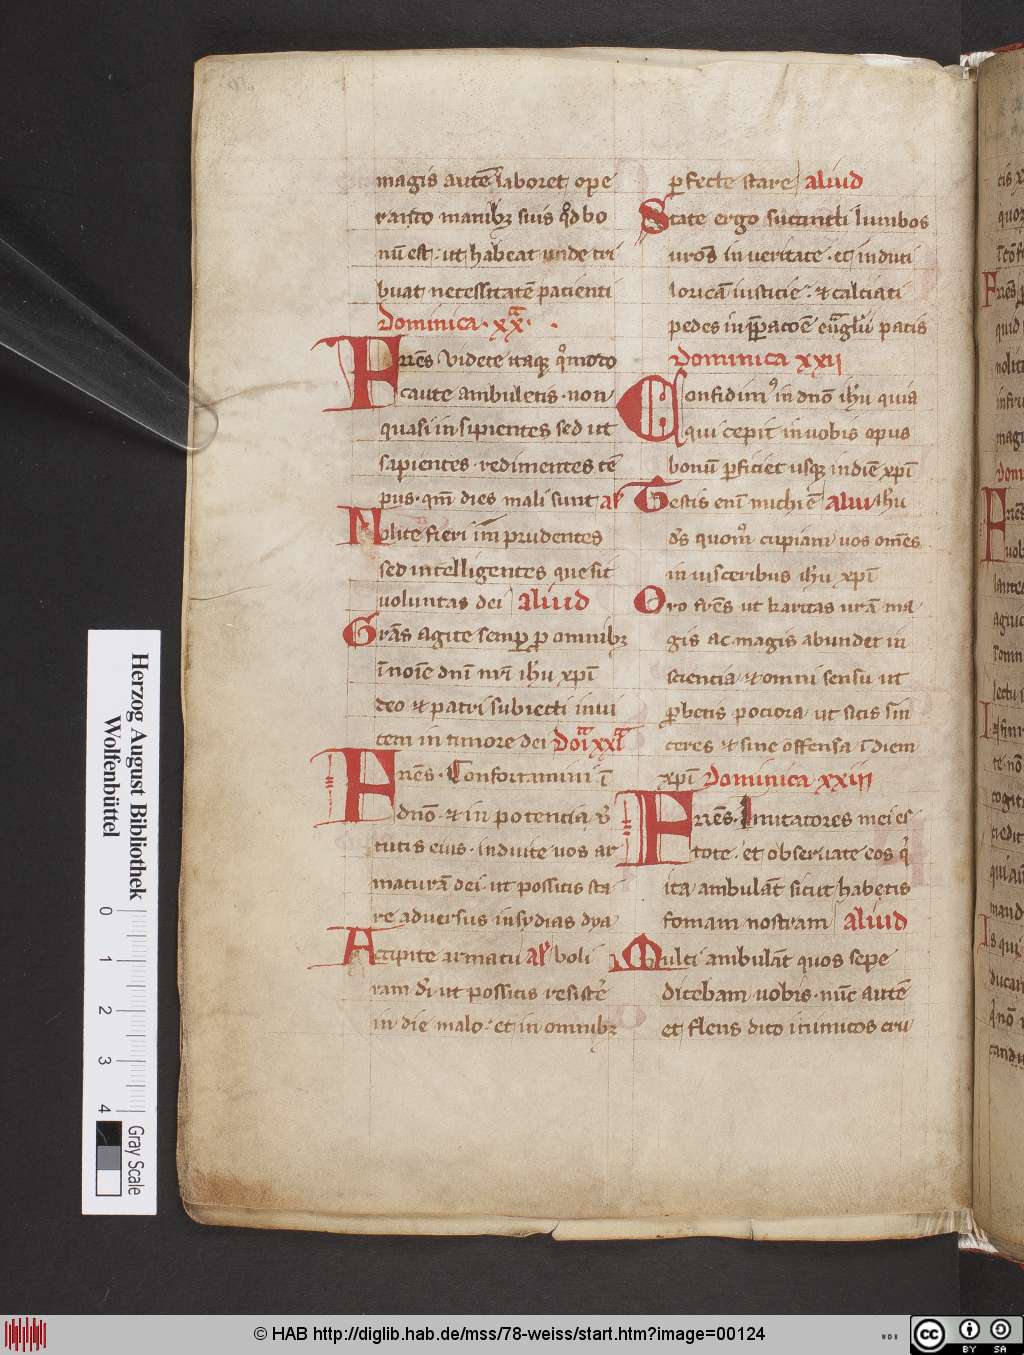 magis autē laboret ope
rando manibꝫ suis qͦd bo
nū est. ut habeat unde tri
buat necessitatē pacienti
Dominica. xxͣ.
Frēs Videte itaqꝫ qͦmodo
caute ambuletis. non
quasi insipientes sed ut
sapientes. redimentes tē
pus. qm̄ dies mali sunt al̓
Nolite fieri imprudentes
sed intelligentes que sit
uoluntas dei aliud
Grās agite semꝑ ꝓ omnibꝫ
ī noīe dnī nrī ihū xpī
deo et patri subiecti inui
cem in timore dei Doīͣ xxiͣ
Frēs. Confortamini ī
dnō. et in potencia uͥ
tutis eius. induite uos ar
maturā dei. ut possitis sta
re aduersus insydias dya
Accipite armatu al̓ boli
ram dī. ut possitis resistē
in die malo. et in omnibꝫ
ꝑfecte stare aliud
State ergo succincti lumbos
uros̄ in ueritate. et induti
loricam iusticie. et calciati
pedes in p̄patōe euͣglii patis
Dominica xxii
Confidimꝰ in dnō ihū quia
qui cepit in uobis opus
bonū ꝑficiet usqꝫ in diē xpī
Testis enī michi ē aliu ihū
ds̄ quom̊ cupiam uos om̄es
in uisceribus ihū xpī
Oro frēs ut karitas urā ma
gis ac magis abundet in
sciencia et omni sensu ut
ꝓbetis pociora ut sitis sin
ceres et sine offensa ī diem
xpī Dominica xxiii
Frēs. Imitatores mei es
tote. et obseruate eos qͥ
ita ambulāt sicut habetis
fomam nostram aliud
Multi ambulāt quos sepe
dicebam uobis. nūc autē
et flens dico inimicos cru
Herzog August Bibliothek
Wolfenbüttel
0 1 2 3 4
Gray Scale
© HAB http://diglib.hab.de/mss/78-weiss/start.htm?image=00124
WDB
cc BY SA